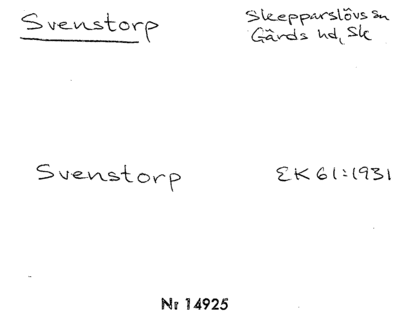 Svenstorp
Skepparslövs sn
Gärds hd, Sk
Svenstorp
EK 61:1931
Nr 14925